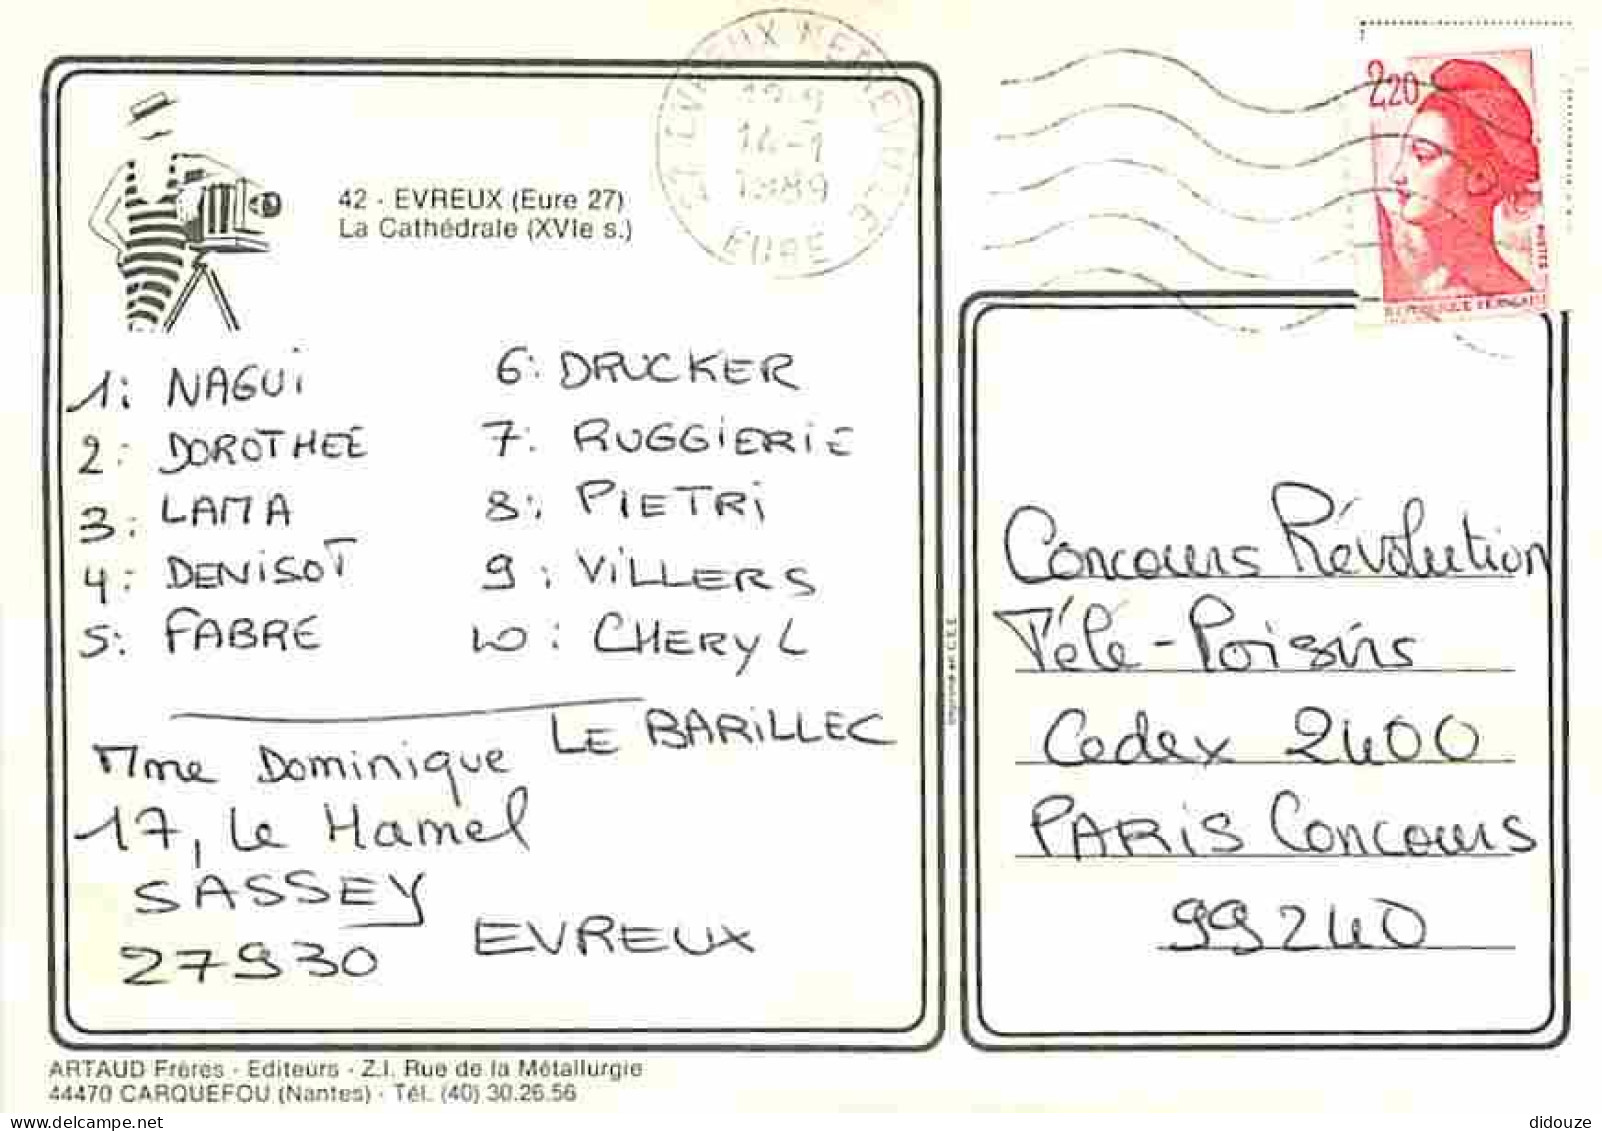 42 - EVREUX (Eure 27)
La Cathédrale (XVIe s.)
27 EVREUX
14-1
1989
EURE
2,20
POSTES
REPUBLIQUE FRANCAISE
1: NAGUi
2: DOROTHEE
3: LAMA
4: DENiSOT
5: FABRE
6: DRUCKER
7: RUGGiERiE
8: PiETRi
9: ViLLERS
10: CHERYL
Mme Dominique LE BARiLLEC
17, le Hamel
SASSEY
27930 EVREUX
Concours Révolution
Télé-Poisins
Cedex 2400
PARiS Concours
99240
ARTAUD Frères - Editeurs - Z.I. Rue de la Métallurgie
44470 CARQUEFOU (Nantes) - Tél. (40) 30.26.56
www.delcampe.net
didouze